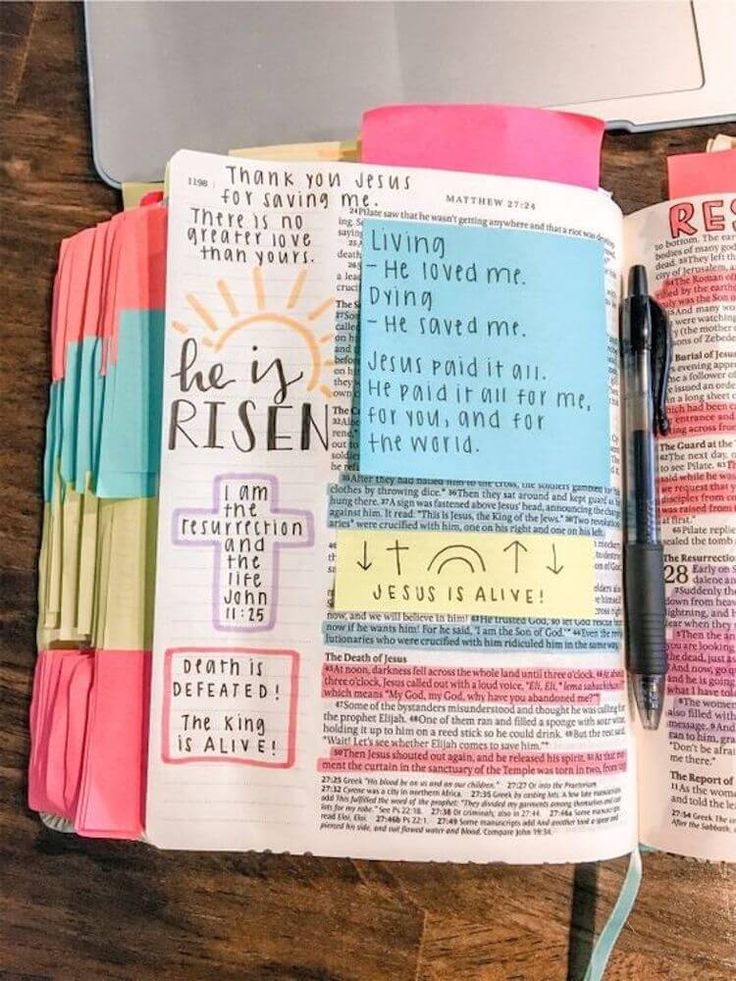 1198
Thank you Jesus
for saving me.
There is no
greater love
than yours.
he is
RISEN
I am
the
resurrection
and
the
life
John
11:25
Death is
DEFEATED!
The King
is ALIVE!
MATTHEW 27:24
24Pilate saw that he wasn't getting anywhere and that a riot was
Living
- He loved me.
Dying
- He saved me.
Jesus paid it all.
He paid it all for me,
for you, and for
the world.
clothes by throwing dice. 36Then they sat around and kept guard as he
hung there. 37A sign was fastened above Jesus' head, announcing the charge
against him. It read: "This is Jesus, the King of the Jews." 38Two revolution-
aries were crucified with him, one on his right and one on his left.
↓ † ↑ ↓
JESUS IS ALIVE!
now, and we will believe in him! 43He trusted God, so let God rescue him
now if he wants him! For he said, 'I am the Son of God.'" 44Even the revo-
lutionaries who were crucified with him ridiculed him in the same way.
The Death of Jesus
45At noon, darkness fell across the whole land until three o'clock. 46At about
three o'clock, Jesus called out with a loud voice, "Eli, Eli, lema sabachthani?"
which means "My God, my God, why have you abandoned me?"
47Some of the bystanders misunderstood and thought he was calling for
the prophet Elijah. 48One of them ran and filled a sponge with sour wine,
holding it up to him on a reed stick so he could drink. 49But the rest said,
"Wait! Let's see whether Elijah comes to save him."
50Then Jesus shouted out again, and he released his spirit. 51At that mo-
ment the curtain in the sanctuary of the Temple was torn in two, from top
27:25 Greek "His blood be on us and on our children." 27:27 Or into the Praetorium.
27:32 Cyrene was a city in northern Africa. 27:35 Greek by casting lots. A few late manuscripts
add This fulfilled the word of the prophet: "They divided my garments among themselves and cast
lots for my robe." See Ps 22:18. 27:38 Or criminals; also in 27:44. 27:46a Some manuscripts
read Eloi, Eloi. 27:46b Ps 22:1. 27:49 Some manuscripts add And another took a spear and
pierced his side, and out flowed water and blood. Compare John 19:34.
RES
to bottom. The ear
bodies of many god
dead. 53They left th
city of Jerusalem, a
54The Roman of
by the earth
was the Son o
55And many wo
were watching
(the mother
sons of Zebede
Burial of Jesus
evening appr
a follower of
issued an order
a long sheet
which had been ca
entrance and
across from
The Guard at the
62The next day, o
to see Pilate. 63Th
said while he was
we request that y
disciples from c
was raised from
at first."
65Pilate replie
sealed the tomb
The Resurrection
28 Early on S
dalene an
2Suddenly
down from heav
lightning, and h
ear when they s
5Then the an
you are looking
the dead, just as
And now, go q
and he is going
what I have told
8The women
also filled with
message. 9And
ran to him, gra
"Don't be afrai
me there."
The Report of
11As the wome
and told the lea
27:54 Greek The c
After the Sabbath,